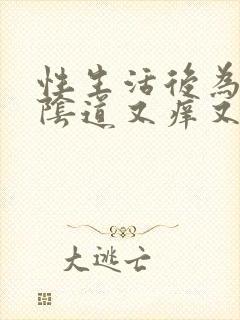 性生活後為
陰道又痒又
大逃亡